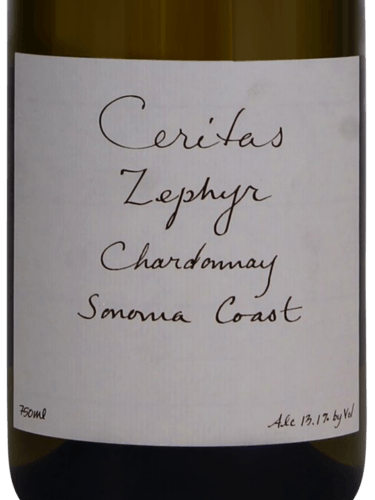 Ceritas
Zephyr
Chardonnay
Sonoma Coast
750ml
Alc 13.1% by Vol